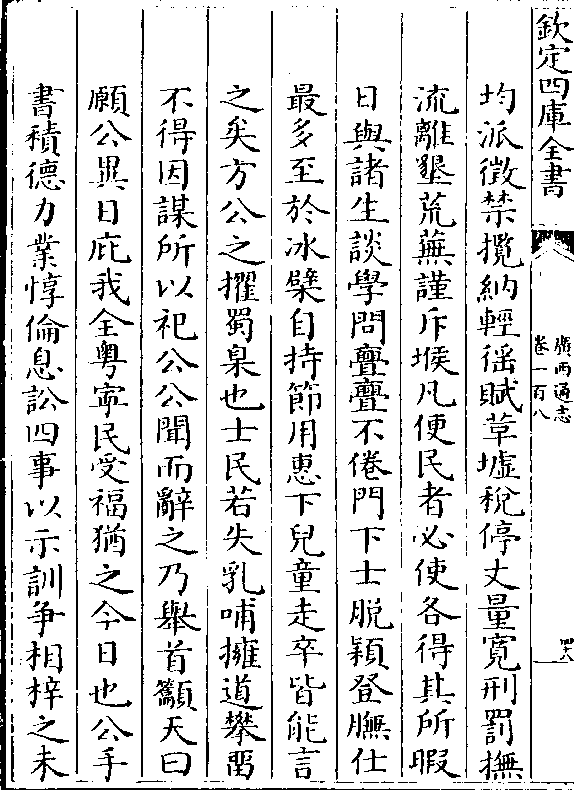 欽定四庫全書
廣西通志
卷一百八
四十八
均派徴禁攬納輕徭賦草墟稅停丈量寛刑罰撫
流離墾荒蕪謹斥堠凡便民者必使各得其所暇
日與諸生談學問亹亹不倦門下士脱穎登膴仕
最多至於冰檗自持節用惠下兒童走卒皆能言
之矣方公之擢蜀臬也士民若失乳哺擁道攀留
不得因謀所以祀公公聞而辭之乃舉首籲天曰
願公異日庇我全粤寧民受福猶之今日也公手
書積德力業惇倫息訟四事以示訓争相梓之未